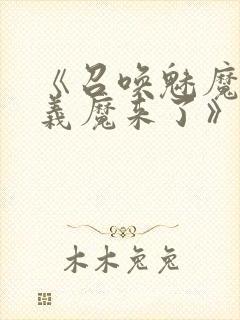 《召唤魅魔
義魔来了》
木木兔兔